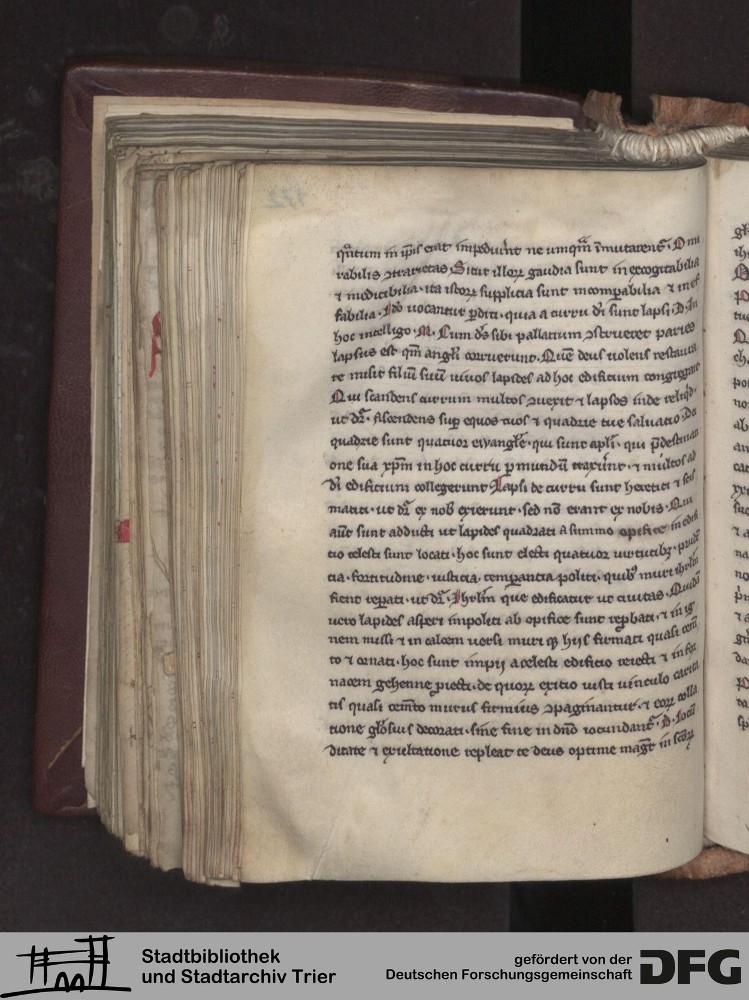 qñtum in ip̄is erat impediunt ne umqm̄ īmutarent᷑. O mi
rabilis ꝯtrarietas. Sicut illoꝝ gaudia sunt inexcogitabilia
⁊ inedicibilia. ita istoꝝ supplicia sunt incomꝑabilia ⁊ inef
fabilia. Ido᷑ uocantur ꝑditi. quia a curru dī sunt lapsi. D. An
hoc intelligo. M. Cum dꝰs sibi pallatium ꝯstrueret paries
lapsus est qm̄ angłi corruerunt. Quē deus uolens restaura
re misit filiū suū uiuos lapides ad hoc edificium congregare
Qui scandens currum multos ꝯuexit ⁊ lapsos inde reliqͥd.
ut dr̄. Ascendens suꝑ equos tuos ⁊ quadrie tue saluatio. De
quadrie sunt quatuor ewangłe. qui sunt apłi. qui p̄destinati
one sua xp̄m in hoc curru ꝑ mundū traxūnt. ⁊ multos ad
dī edificium collegerunt. Lapsi de curru sunt heretici ⁊ scis
matici. ut dr̄ ex nob exierunt. sed nō erant ex nobis. Qui
aūt sunt adducti ut lapides quadrati a summo opifice in edifi
cio celesti sunt locati. hoc sunt electi quatuor uirtutibꝫ. pruden
cia. fortitudine. iusticia. temꝑantia politi. quibꝰ muri ihrłm
fient reꝑati. ut dr̄. Ihrłm que edificatur ut ciuitas. Quidā
uero lapides asperi impoliti ab opifice sunt rep̄bati. ⁊ in ig
nem missi ⁊ in calcem uersi muri ꝗ hijs firmati quasi cem̄
to ⁊ ornati. hoc sunt impij a celesti edificio reiecti ⁊ in for
nacem gehenne ꝓiecti. de quoꝝ exitio iusti uinculo carita
tis quasi cem̄to murus firmius ꝯpaginantur. ⁊ eoꝝ colla
tione głosius decorati. sine fine in dn̄o iocundant᷑. D. Iocū
ditate ⁊ exultatione repleat te deus optime magr̄ in sc̄oꝝ
Stadtbibliothek
und Stadtarchiv Trier
gefördert von der
Deutschen Forschungsgemeinschaft
DFG